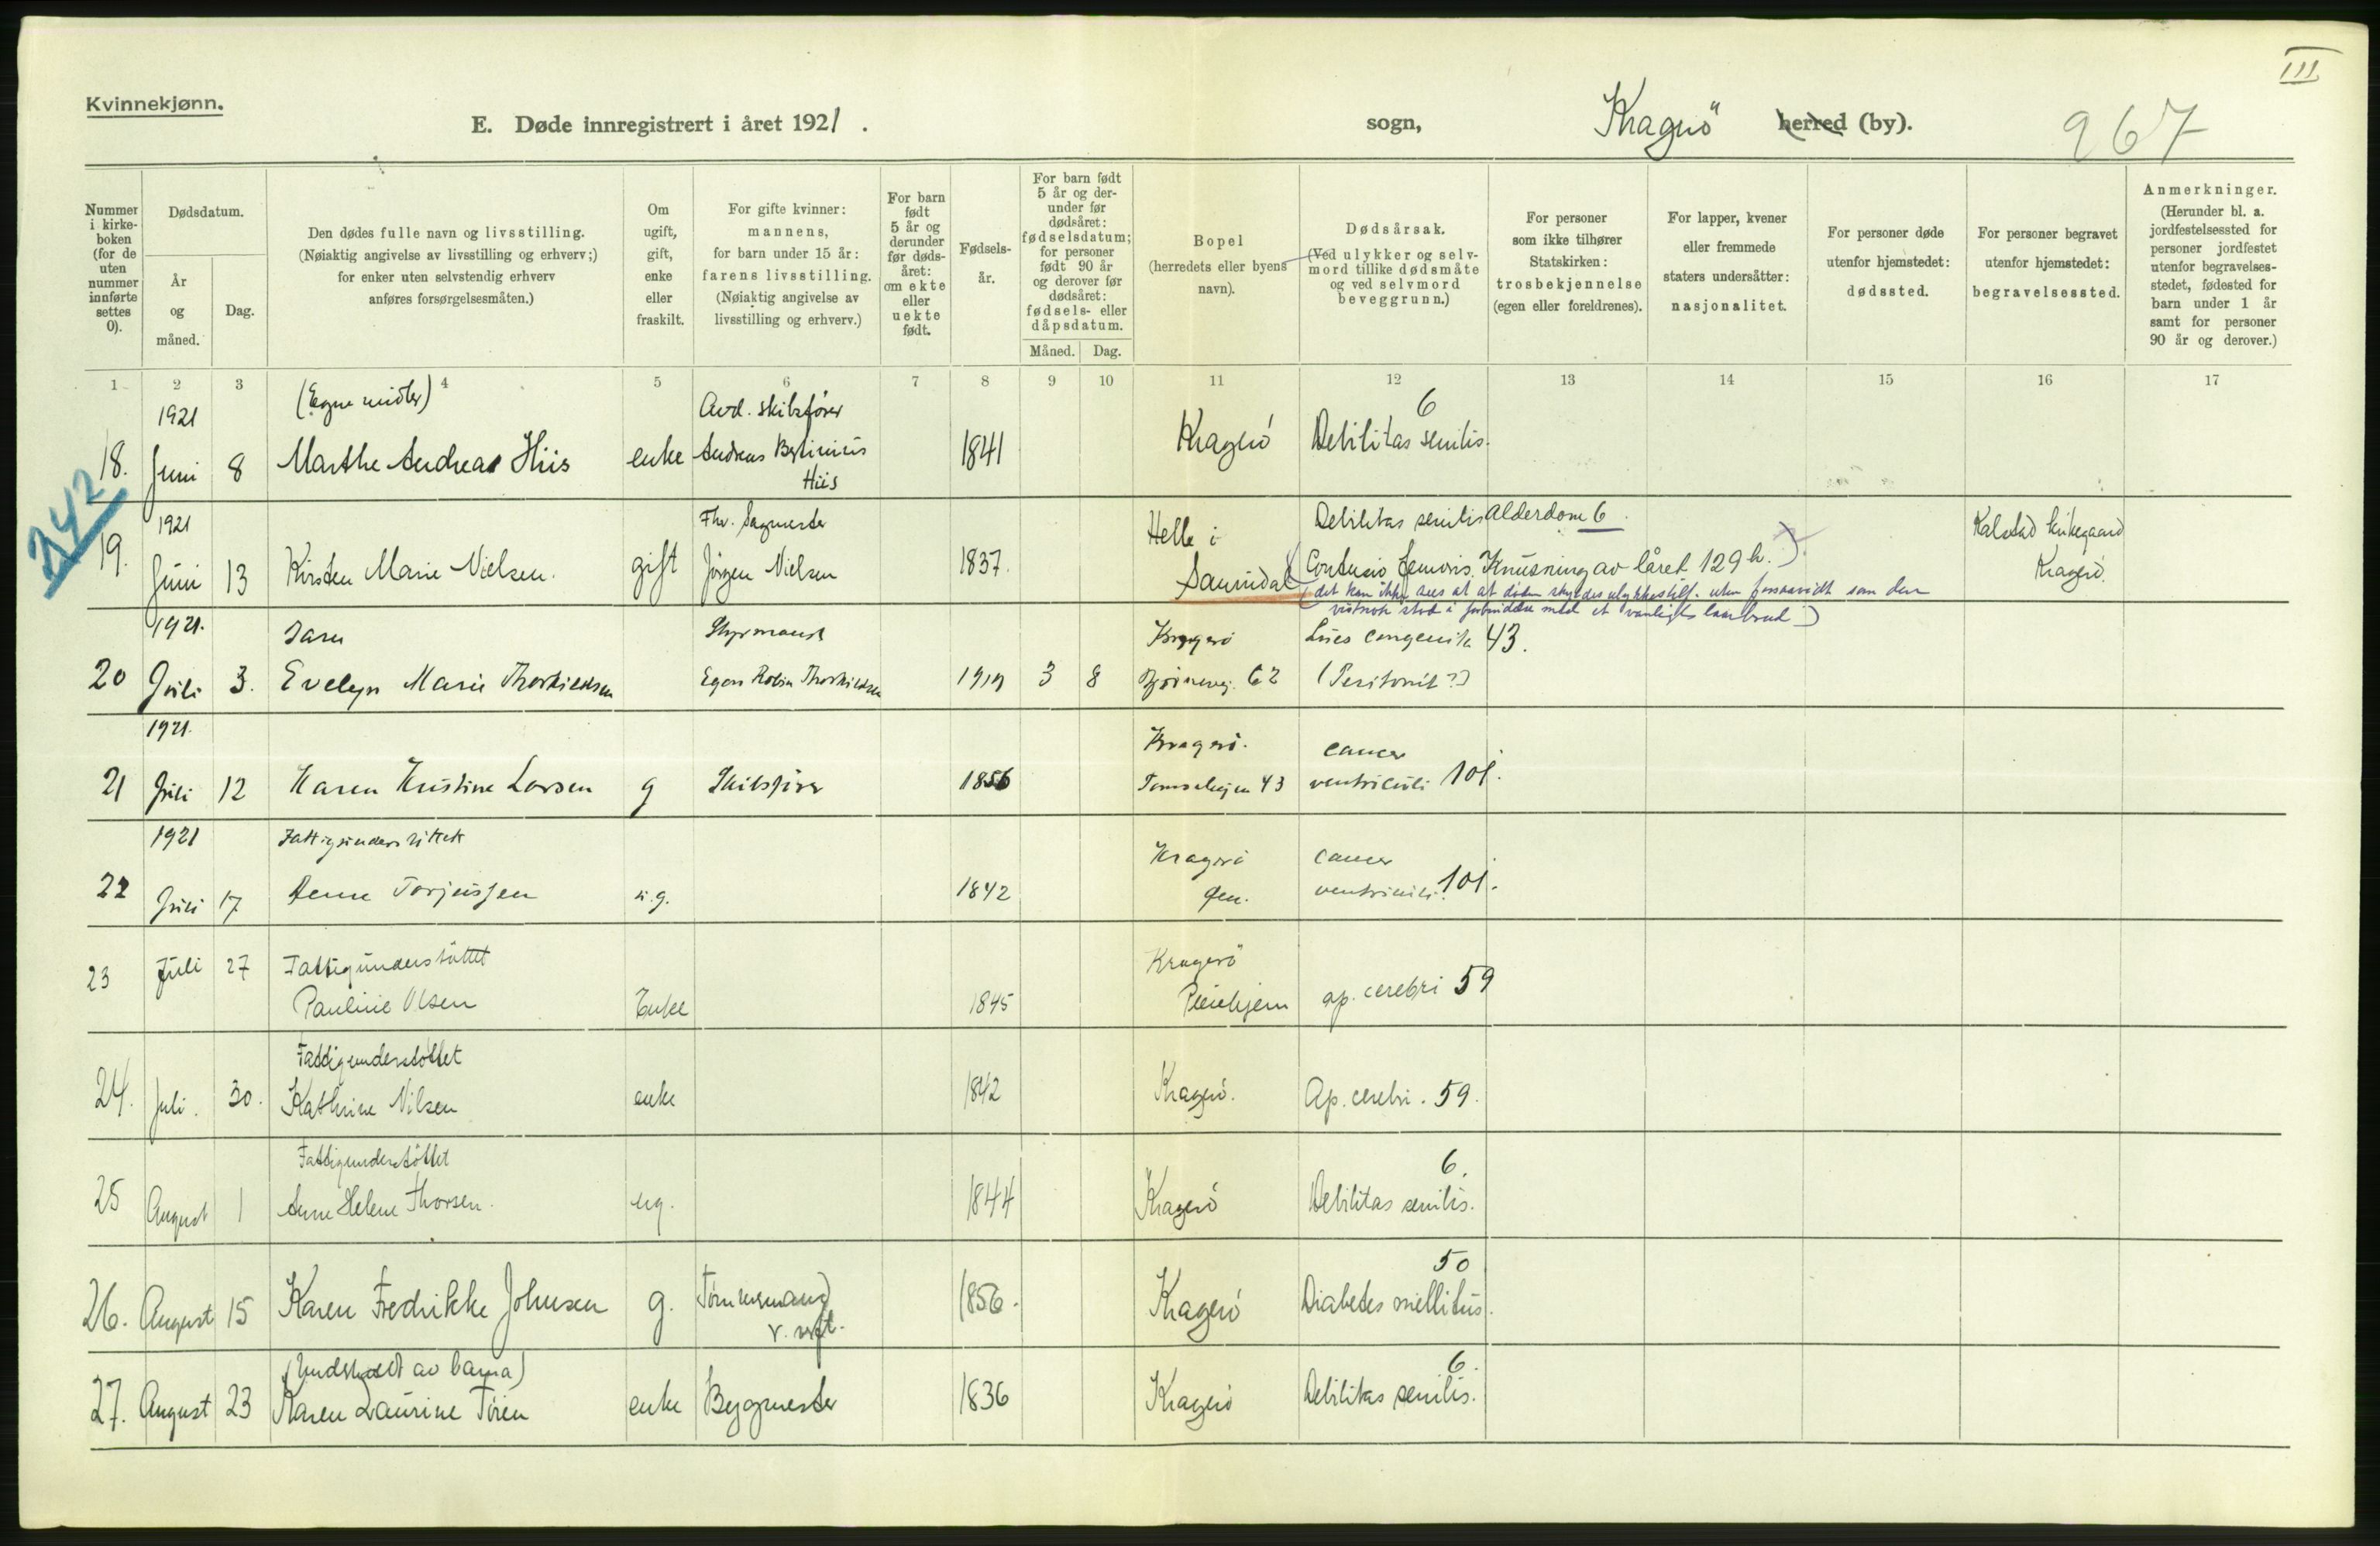 III
Kvinnekjønn.
E. Døde innregistrert i året 1921. sogn, Kragerö herred (by). 967
Nummer i kirke-boken (for de uten nummer innførte settes 0).
Dødsdatum.
År og måned.
Dag.
Den dødes fulle navn og livsstilling.
(Nøiaktig angivelse av livsstilling og erhverv;)
for enker uten selvstendig erhverv
anføres forsørgelsesmåten.)
Om ugift, gift, enke eller fraskilt.
For gifte kvinner: mannens,
for barn under 15 år: farens livsstilling.
(Nøiaktig angivelse av livsstilling og erhverv.)
For barn født 5 år og derunder før døds-året: om ekte eller uekte født.
Fødsels-år.
For barn født 5 år og der-under før dødsåret: fødselsdatum; for personer født 90 år og derover før dødsåret: fødsels- eller dåpsdatum.
Måned. Dag.
Bopel (herredets eller byens navn).
Dødsårsak.
(Ved ulykker og selv-mord tillike dødsmåte og ved selvmord beveggrunn.)
For personer som ikke tilhører Statskirken: trosbekjennelse (egen eller foreldrenes).
For lapper, kvener eller fremmede staters undersåtter: nasjonalitet.
For personer døde utenfor hjemstedet: dødssted.
For personer begravet utenfor hjemstedet: begravelsessted.
Anmerkninger.
(Herunder bl. a. jordfestelsessted for personer jordfestet utenfor begravelses-stedet, fødested for barn under 1 år samt for personer 90 år og derover.)
1 2 3 4 5 6 7 8 9 10 11 12 13 14 15 16 17
1921 (Egne midler) Avd. skibsfører 6
18. Juni 8 Marthe Andrea Hiis enke Andreas Bertinius Hiis 1841 Kragerö Debilitas senilis.
242
1921 Fhv. Sagmester Helle i Debilitas senilis Alderdom 6. Kalstad kirkegaard
19. Juni 13 Kirsten Marie Nielsen. gift Jörgen Nielsen 1837. Sannidal (Contusio femoris. Knusning av låret 129 h.) Kragerö.
(det kan ikke sees at at døden skyldes ulykkestilf. uten forsaavidt som den
vistnok stod i forbindelse med et vanligts laarbrud)
1921. Styrmand Kragerö Lues congenita 43.
20 Juli 3. Evelyn Marie Thorkildsen Egon Robin Thorkildsen 1919 3 8 62 (Peritonit?)
1921. Kragerö. cancer
21 Juli 12 Karen Kristine Larsen g Skibsfører 1856 43 ventriculi 101.
1921 Fattigunderstöttet Kragerö cancer
22 Juli 17 Torjussen u.g. 1842 ventriculi. 101.
23 Juli 27 Fattigunderstöttet Kragerö
Pauline Olsen Enke 1845 Pleiehjem ap. cerebri 59
Fattigunderstöttet
24. Juli. 30. Kathrine Nilsen enke 1842 Kragerö. Ap. cerebri. 59.
Fattigunderstöttet 6.
25 August 1 Anne Helene Thorsen. ug. 1844 Kragerö Debilitas senilis.
50
26. August 15 Karen Fredrikke Johnsen g. Tömmermand 1856. Kragerö Diabetes mellitus.
v. verft.
(Underholdt av barna) 6.
27. August 23 Karen Laurine Tören enke Bygmester 1836 Kragerö Debilitas senilis.